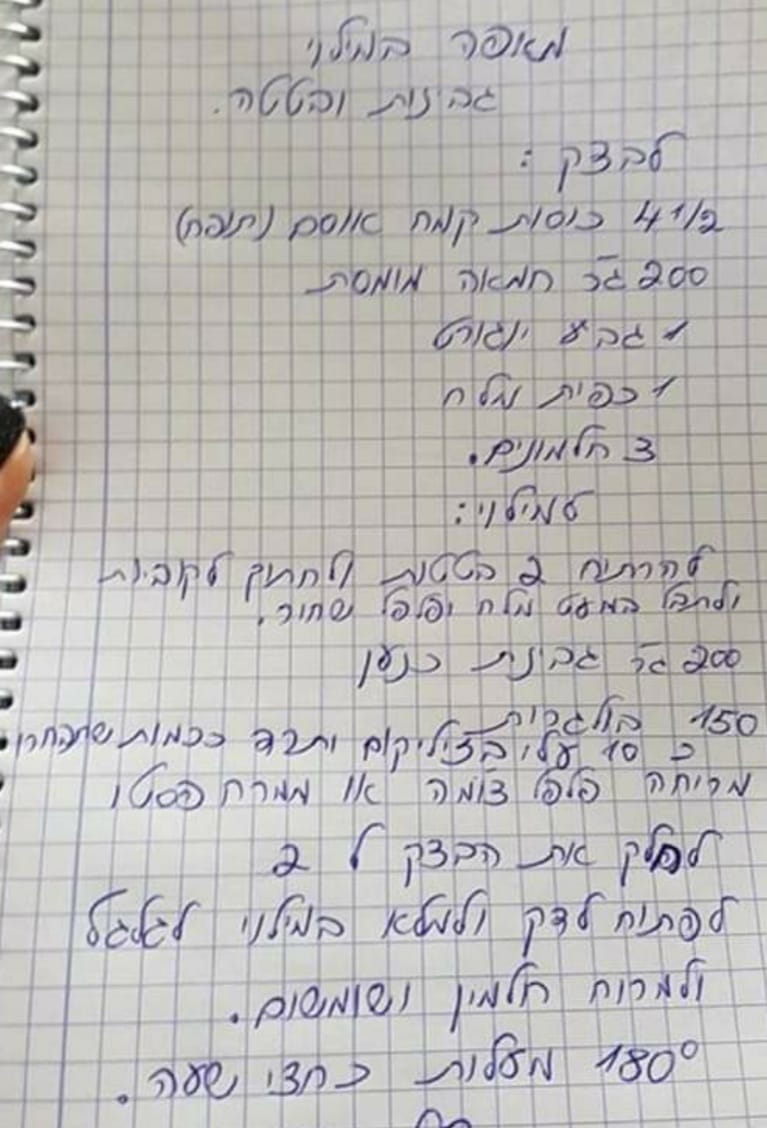 מאפה במילוי
גבינות ובטטה.
לבצק :
4 1/2 כוסות קמח אוסם (תופח)
200 גר חמאה מומסת
1 גביע יוגורט
1 כפית מלח
3 חלמונים.
למילוי:
להרתיח 2 בטטות ולחתוך לקוביות
ולתבל במעט מלח ופלפל שחור.
200 גר גבינת כנען
150 בולגרית
כ 10 עלי בזיליקום ותרד ככמות שתבחרו
מריחה פלפל צומה או ממרח פסטו
לחלק את הבצק ל 2
לפתוח לדק ולמלא במילוי לגלגל
ולמרוח חלמון ושומשום.
180° מעלות כחצי שעה.